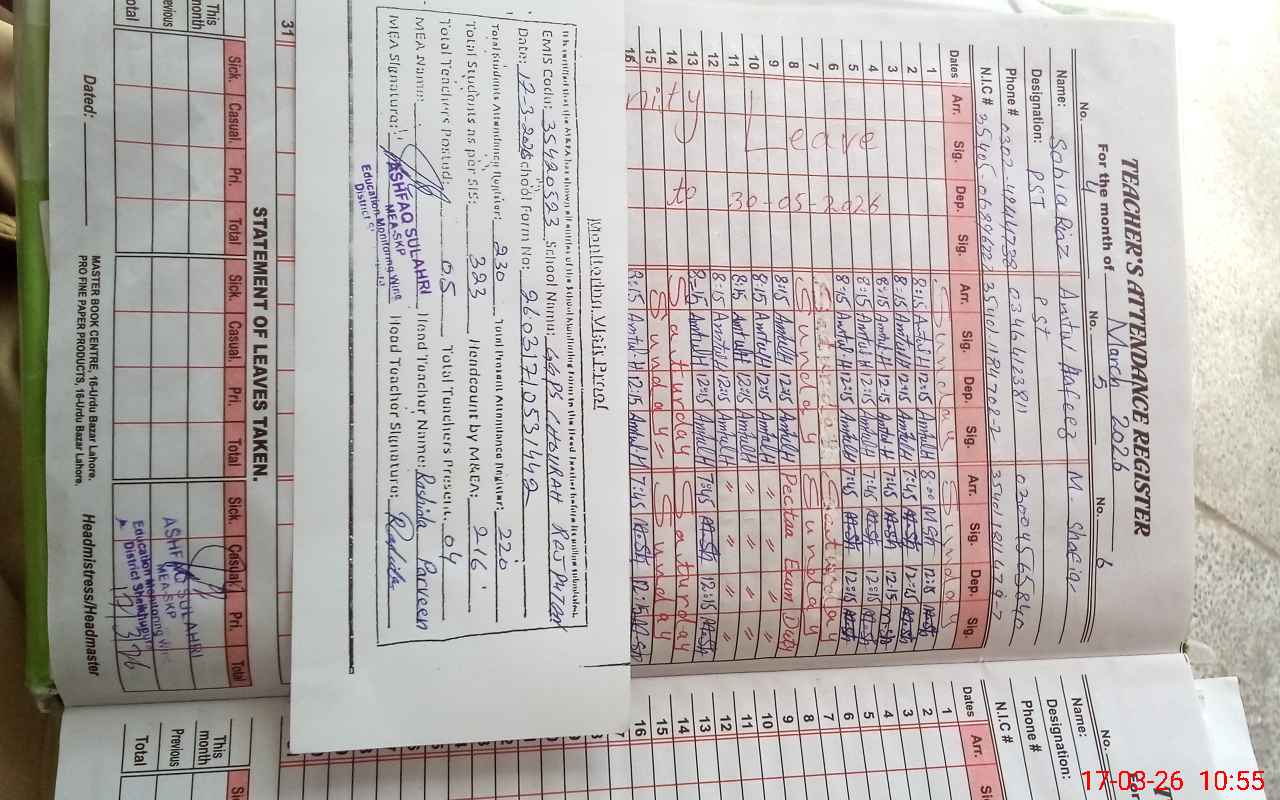 TEACHER'S ATTENDANCE REGISTER
For the month of March 2026
No. 4 No. 5 No. 6
Name: Sobia Riaz Amtul Hafeez M. Shafiq
Designation: PST PST
Phone # 0307-4944738 03464123811 03004565840
N.I.C #
Dates Arr. Sig. Dep. Sig. Arr. Sig. Dep. Sig. Arr. Sig. Dep. Sig.
1 Sunday Sunday
2 8:15 Amtul H 12:15 Amtul H 8:00 12:15
3 8:15 Amtul H 12:15 Amtul H 7:45 12:15
4 8:15 Amtul H 12:15 Amtul H 7:45 12:15
5 8:15 Amtul H 12:15 Amtul H 7:45 12:15
6 8:15 Amtul H 12:15 Amtul H 7:45 12:15
7 Saturday Saturday
8 Sunday Sunday
9 8:15 Amtul H 12:15 Amtul H Pectaa Exam Duty
10 8:15 Amtul H 12:15 Amtul H " " " "
11 8:15 Amtul H 12:15 Amtul H " " " "
12 8:15 Amtul H 12:15 Amtul H " " " "
13 8:15 Amtul H 12:15 Amtul H 7:45 12:15
14 Saturday Saturday
15 Sunday Sunday
16 8:15 Amtul H 12:15 Amtul H 7:45 12:15
nity Leave
to 30-05-2026
Monitoring Visit Proof
EMIS Code: 35420503 School Name: GGPS CHOURAH RAJPUTAN
Date: 17-3-2026 School Form No: 26031710531442
Total Students Attendance Register: 230 Total Present Attendance Register: 220
Total Students as per SIS: 323 Headcount by MEA: 216
Total Teachers Posted: 05 Total Teachers Present: 04
MEA Name: Head Teacher Name: Rashida Parveen
MEA Signature: Head Teacher Signature: Rashida
ASHFAQ SULAHRI
MEA-SKP
Education Monitoring Wing
31
STATEMENT OF LEAVES TAKEN.
Sick. Casual. Pri. Total Sick. Casual. Pri. Total Sick. Casual. Pri. Total
This month
Previous
Total
ASHFAQ SULAHRI
MEA-SKP
Education Monitoring Wing
District Sheikhupura
17/3/26
Dated:
MASTER BOOK CENTRE, 16-Urdu Bazar Lahore.
PRO FINE PAPER PRODUCTS, 16-Urdu Bazar Lahore.
Headmistress/Headmaster
No.
For
Name:
Designation:
Phone #
N.I.C #
Dates Arr.
1
2
3
4
5
6
7
8
9
10
11
12
13
14
15
16
This month
Previous
Total
17-03-26 10:55